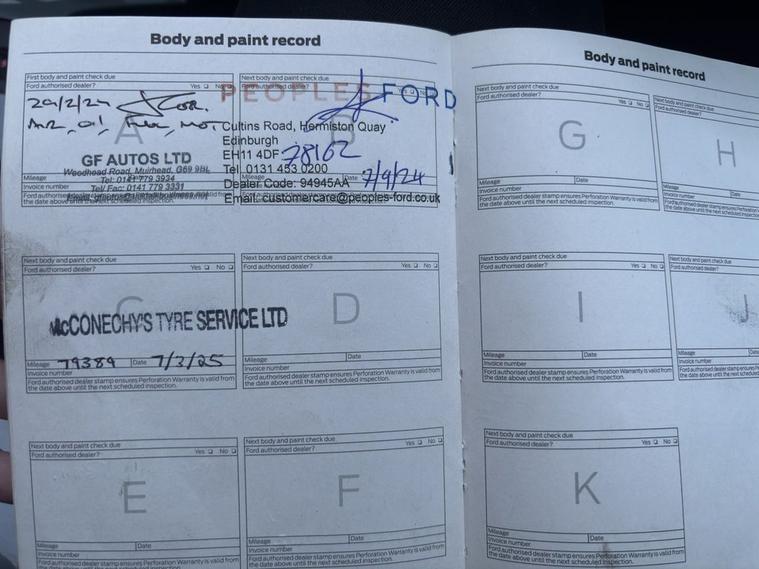 Body and paint record
First body and paint check due
Ford authorised dealer? Yes No
29/2/24
A
GF AUTOS LTD
Woodhead Road, Muirhead, G69 9BL
Tel: 0141 779 3934
Tel/ Fax: 0141 779 3331
Mileage
Invoice number
the date above until the next scheduled inspection.
Next body and paint check due
Ford authorised dealer? Yes No
PEOPLES FORD
Cultins Road, Hermiston Quay
Edinburgh
EH11 4DF 78162
Tel 0131 453 0200
Mileage Date 7/9/24
Dealer Code: 94945AA
Email: customercare@peoples-ford.co.uk
Next body and paint check due
Ford authorised dealer? Yes No
C
McCONECHY'S TYRE SERVICE LTD
Mileage 79389 Date 7/3/25
Invoice number
Ford authorised dealer stamp ensures Perforation Warranty is valid from
the date above until the next scheduled inspection.
Next body and paint check due
Ford authorised dealer? Yes No
D
Mileage Date
Invoice number
Ford authorised dealer stamp ensures Perforation Warranty is valid from
the date above until the next scheduled inspection.
Next body and paint check due
Ford authorised dealer? Yes No
E
Mileage Date
Invoice number
Ford authorised dealer stamp ensures Perforation Warranty is valid from
the date above until the next scheduled inspection.
Next body and paint check due
Ford authorised dealer? Yes No
F
Mileage Date
Invoice number
Ford authorised dealer stamp ensures Perforation Warranty is valid from
Body and paint record
Next body and paint check due
Ford authorised dealer? Yes No
G
Mileage Date
Invoice number
Ford authorised dealer stamp ensures Perforation Warranty is valid from
the date above until the next scheduled inspection.
Next body and paint check due
Ford authorised dealer?
H
Mileage
Invoice number
Ford authorised dealer stamp ensures
the date above until the next scheduled
Next body and paint check due
Ford authorised dealer? Yes No
I
Mileage Date
Invoice number
Ford authorised dealer stamp ensures Perforation Warranty is valid from
the date above until the next scheduled inspection.
Next body and paint check due
Ford authorised dealer?
J
Mileage
Invoice number
Ford authorised dealer stamp ensures
the date above until the next scheduled
Next body and paint check due
Ford authorised dealer? Yes No
K
Mileage Date
Invoice number
Ford authorised dealer stamp ensures Perforation Warranty is valid from
the date above until the next scheduled inspection.